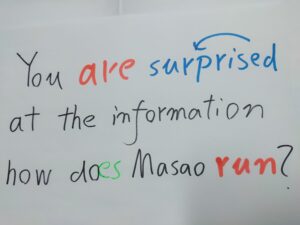 You are surprised
at the information
how does Masao run?